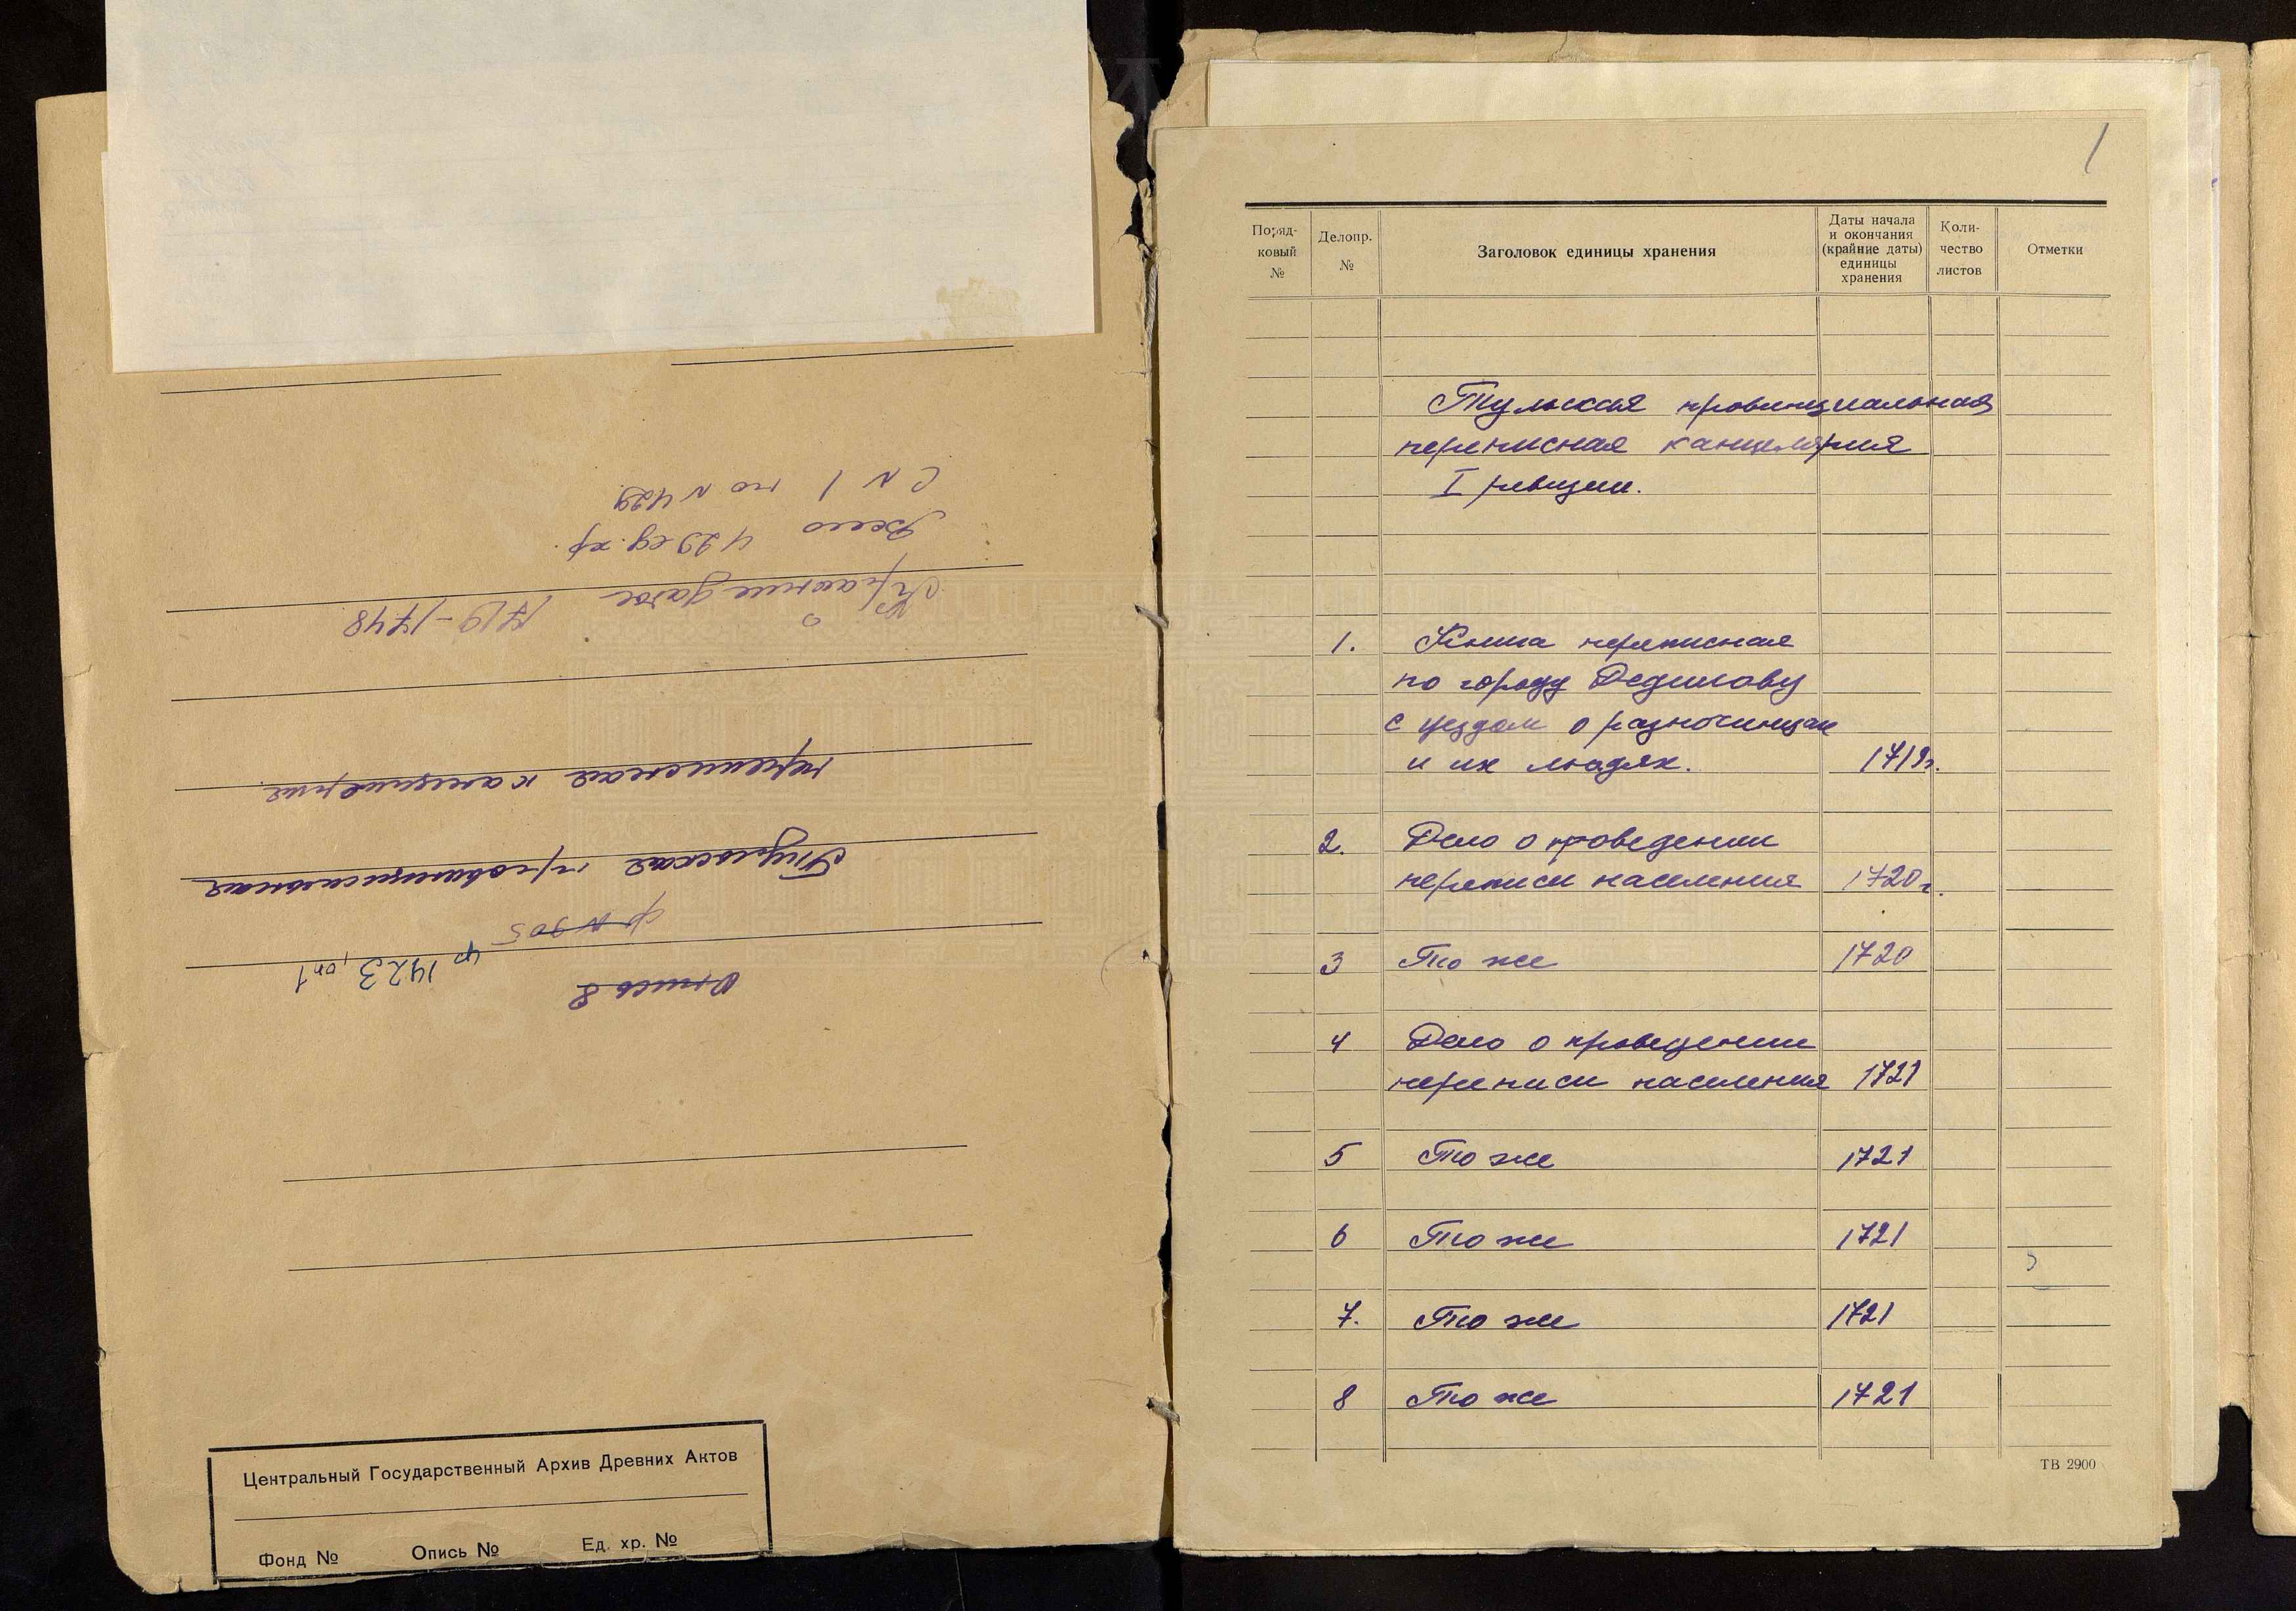 Опись 8
ф 1423, оп 1
ф N 905
Тульская провинциальная
переписная канцелярия
Крайние даты 1719-1748
Всего 429 ед. хр.
С N 1 по N 429
Центральный Государственный Архив Древних Актов
Фонд № Опись № Ед. хр. №
1
Поряд-
ковый
№
Делопр.
№
Заголовок единицы хранения
Даты начала
и окончания
(крайние даты)
единицы
хранения
Коли-
чество
листов
Отметки
Тульская провинциальная
переписная канцелярия
I ревизии.
1. Книга переписная
по городу Дедилову
с уездом о разночинцах
и их людях. 1719г.
2. Дело о проведении
переписи населения 1720г.
3 То же 1720
4 Дело о проведении
переписи населения 1721
5 То же 1721
6 То же 1721
7. То же 1721
8 То же 1721
ТВ 2900